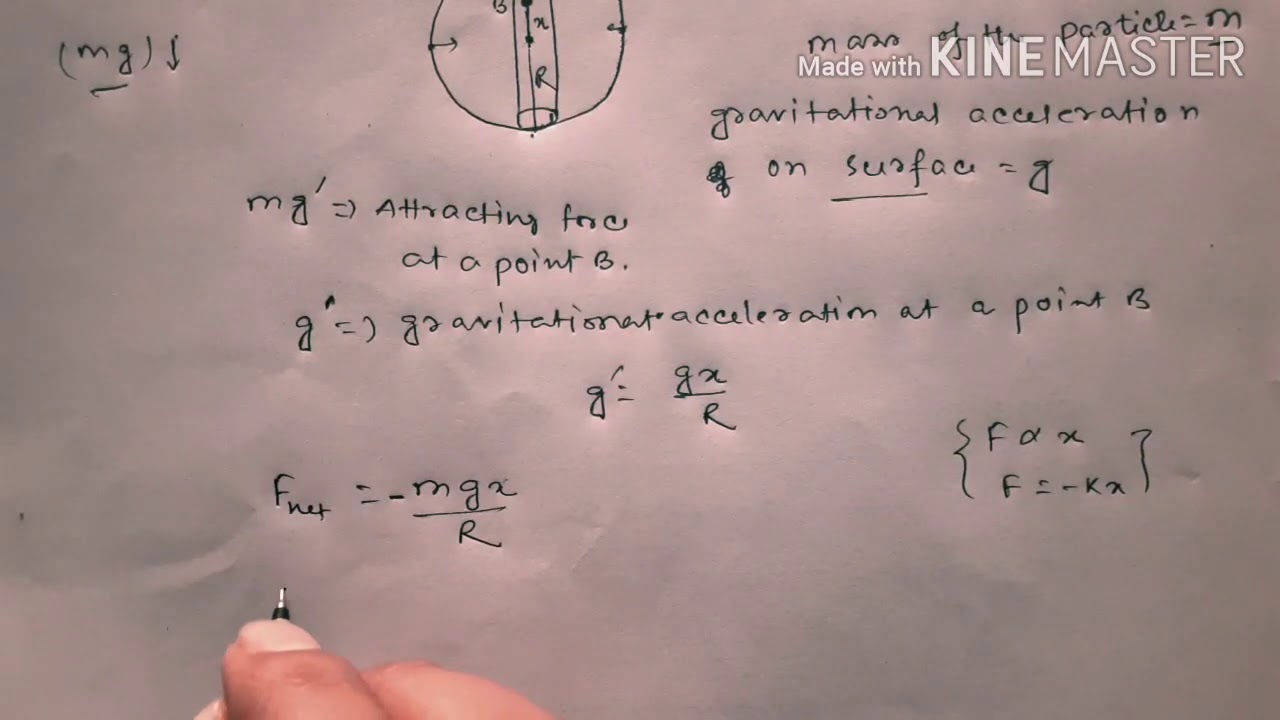 B
x
R
(mg)↓
mass of the particle = m
Made with KINEMASTER
gravitational acceleration
on surface = g
mg' => Attracting forc
at a point B.
g' => gravitational acceleration at a point B
g' = gx/R
{F ∝ x
F = -Kx}
Fnet = -mgx/R